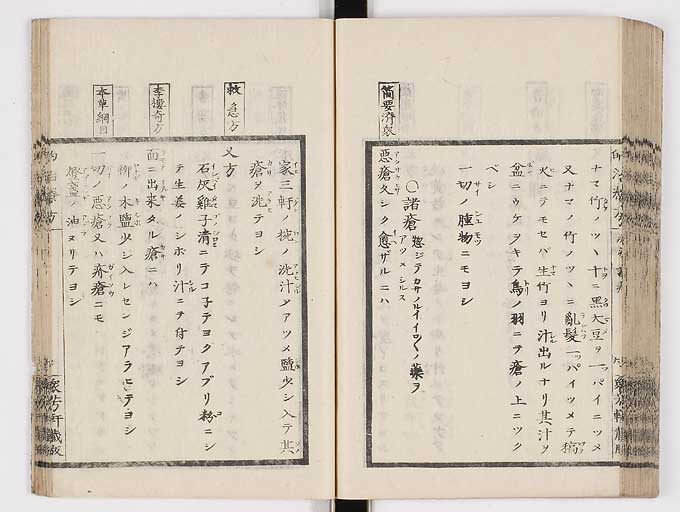 ナマ竹ノツヽ十ニ黒大豆ヲ一パイニツメ
又ナマノ竹ノツヽニ亂髮一ツパイツメテ稿
火ニテモセバ生竹ヨリ汁出ルナリ其汁ヲ
盆ニウケヲキテ鳥ノ羽ニテ瘡ノ上ニツク
ベシ
一切ノ腫物ニモヨシ
○諸瘡 惣ジテカサノルイイロ〱ノ藥ヲアツメシルス
簡要濟衆
惡瘡久シク愈ザルニハ
家三軒ノ椀ノ洗汁ヲアツメ鹽少シ入テ其
瘡ヲ洗テヨシ
救急方
又方
石灰雞子清ニテコ子テヨクアブリ粉ニシ
テ生姜ノシボリ汁ニテ付テヨシ
李樓奇方
面ニ出来タル瘡ニハ
柳ノ木鹽少シ入レセンジアラヒテヨシ
本草綱目
一切ノ惡瘡又ハ疥瘡ニモ
燈盞ノ油ヌリテヨシ